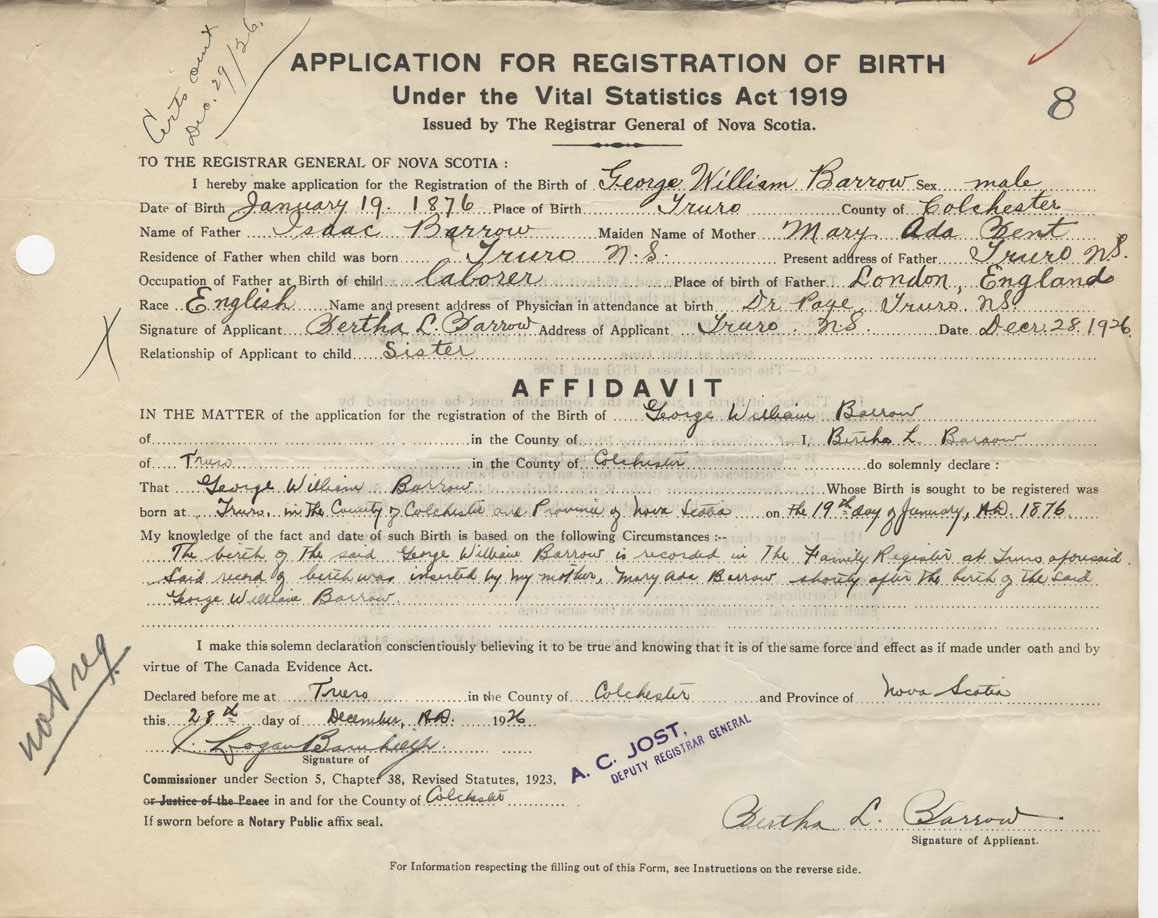 Certs out
Dec. 29/26.
APPLICATION FOR REGISTRATION OF BIRTH
Under the Vital Statistics Act 1919
8
Issued by The Registrar General of Nova Scotia.
TO THE REGISTRAR GENERAL OF NOVA SCOTIA :
I hereby make application for the Registration of the Birth of George William Barrow Sex male
Date of Birth January 19. 1876 Place of Birth Truro County of Colchester
Name of Father Isaac Barrow Maiden Name of Mother Mary Ada Kent
Residence of Father when child was born Truro N.S. Present address of Father Truro N.S.
Occupation of Father at Birth of child laborer Place of birth of Father London, England
Race English Name and present address of Physician in attendance at birth Dr Page, Truro, N.S.
Signature of Applicant Bertha L. Barrow Address of Applicant Truro. N.S. Date Decr. 28. 1926
Relationship of Applicant to child Sister
X
AFFIDAVIT
IN THE MATTER of the application for the registration of the Birth of George William Barrow
of in the County of I, Bertha L. Barrow
of Truro in the County of Colchester do solemnly declare :
That George William Barrow Whose Birth is sought to be registered was
born at Truro, in the County of Colchester and Province of Nova Scotia on the 19th day of January, A.D. 1876
My knowledge of the fact and date of such Birth is based on the following Circumstances :--
The birth of the said George William Barrow is recorded in The Family Register at Truro aforesaid.
Said record of birth was inserted by my mother, Mary Ada Barrow shorty after the birth of the said
George William Barrow.
I make this solemn declaration conscientiously believing it to be true and knowing that it is of the same force and effect as if made under oath and by
virtue of The Canada Evidence Act.
not reg.
Declared before me at Truro in the County of Colchester and Province of Nova Scotia
this 28th day of December, A.D. 1926
Logan Barnhill
Signature of
A. C. JOST,
DEPUTY REGISTRAR GENERAL
Commissioner under Section 5, Chapter 38, Revised Statutes, 1923,
or Justice of the Peace in and for the County of Colchester
If sworn before a Notary Public affix seal.
Bertha L. Barrow
Signature of Applicant.
For Information respecting the filling out of this Form, see Instructions on the reverse side.